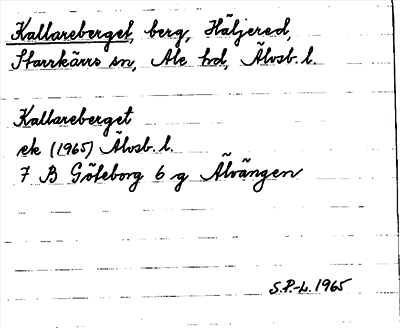 Kallareberget, berg, Häljered,
Starrkärrs sn, Ale hd, Älvsb. l.
Kallareberget
ek (1965) Älvsb. l.
7 B Göteborg 6 g Älvängen
S.P.-L. 1965